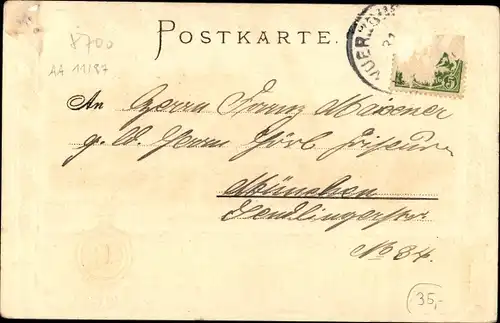 8700
AA 11/87
POSTKARTE.
WUERZ
An Herrn Franz Maixner
p. Ad. Herrn Hörl Friseur
München
Sendlingerstr
No 34.
5
35,-